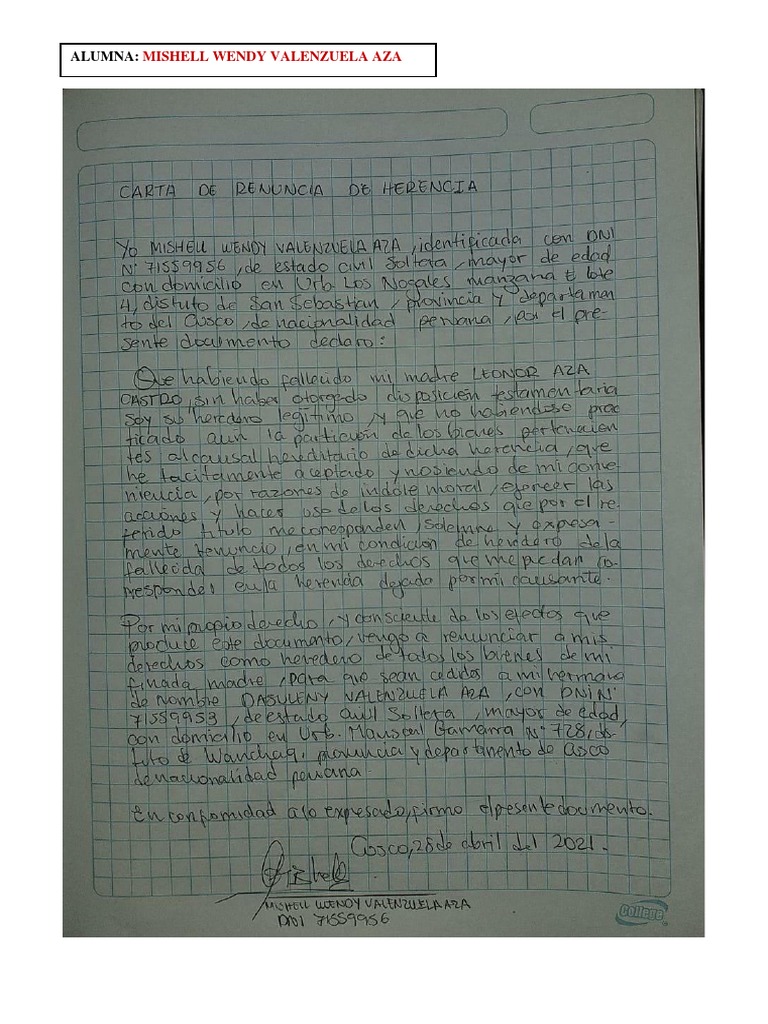 ALUMNA: MISHELL WENDY VALENZUELA AZA
CARTA DE RENUNCIA DE HERENCIA
Yo MISHELL WENDY VALENZUELA AZA, identificada con DNI
N° 71559956, de estado civil Soltera, mayor de edad
con domicilio en Urb Los Nogales manzana E lote
4, distuto de San Sebastian, provincia y departamen
to del Cusco, de nacionalidad peruana, por el pre-
sente documento declaro:
Que habiendo fallecido mi madre LEONOR AZA
CASTRO, sin haber otorgado disposición testamentaria
Soy su heredero legítimo, y que no habiendose prac
ticado aun la partición de los bienes pertenecien
tes al causal hereditario de dicha herencia, que
he tacitamente aceptado y no siendo de mi conve-
niencia, por razones de indole moral, ejercer las
acciones y hacer uso de los derechos que por el re-
ferido titulo me corresponden, Solemne y expresa-
mente renuncio, en mi condicion de heredero de la
fallecida de todos los derechos que me puedan co-
rresponder en la herencia dejado por mi causante.
Por mi propio derecho, y consciente de los efectos que
produce este documento, vengo a renunciar a mis
derechos como heredero de todos los bienes de mi
finada madre, para que sean cedidos a mi hermana
de nombre DASULENY VALENZUELA AZA, con DNI N°
71559953, de estado civil Soltera, mayor de edad,
con domicilio en Urb. Mariscal Gamarra N° 728, dis-
tuto de Wanchaq, provincia y departamento de Cusco
de nacionalidad peruana.
En conformidad a lo expresado, firmo el presente documento.
Cusco, 28 de abril del 2021.
Mishell
MISHELL WENDY VALENZUELA AZA
DNI 71559956
College